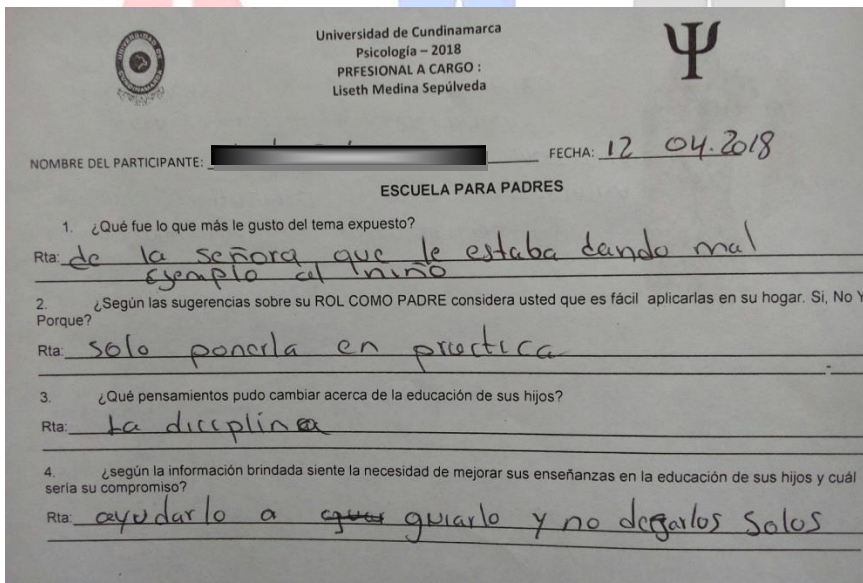 Universidad de Cundinamarca
Psicología – 2018
PRFESIONAL A CARGO :
Liseth Medina Sepúlveda
Ψ
NOMBRE DEL PARTICIPANTE:
FECHA: 12 04.2018
ESCUELA PARA PADRES
1. ¿Qué fue lo que más le gusto del tema expuesto?
Rta: de la señora que le estaba dando mal
ejemplo al niño
2. ¿Según las sugerencias sobre su ROL COMO PADRE considera usted que es fácil aplicarlas en su hogar. Si, No Y
Porque?
Rta: solo ponerla en practica
3. ¿Qué pensamientos pudo cambiar acerca de la educación de sus hijos?
Rta: La diciplina
4. ¿según la información brindada siente la necesidad de mejorar sus enseñanzas en la educación de sus hijos y cuál
sería su compromiso?
Rta: ayudarlo a guiarlo y no degarlos solos